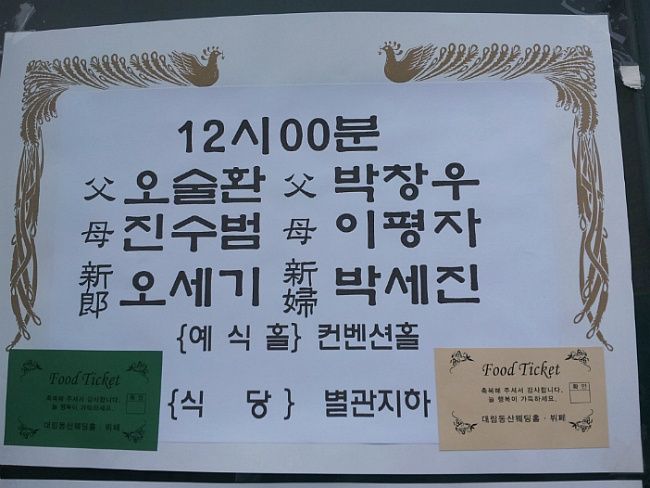 12시00분
父 오술환 父 박창우
母 진수범 母 이평자
新郎 오세기 新婦 박세진
{예 식 홀} 컨벤션홀
{식 당} 별관지하
Food Ticket
축복해 주셔서 감사합니다.
늘 행복이 가득하세요.
확 인
대림동산웨딩홀 · 뷔페
Food Ticket
축복해 주셔서 감사합니다.
늘 행복이 가득하세요.
확 인
대림동산웨딩홀 · 뷔페